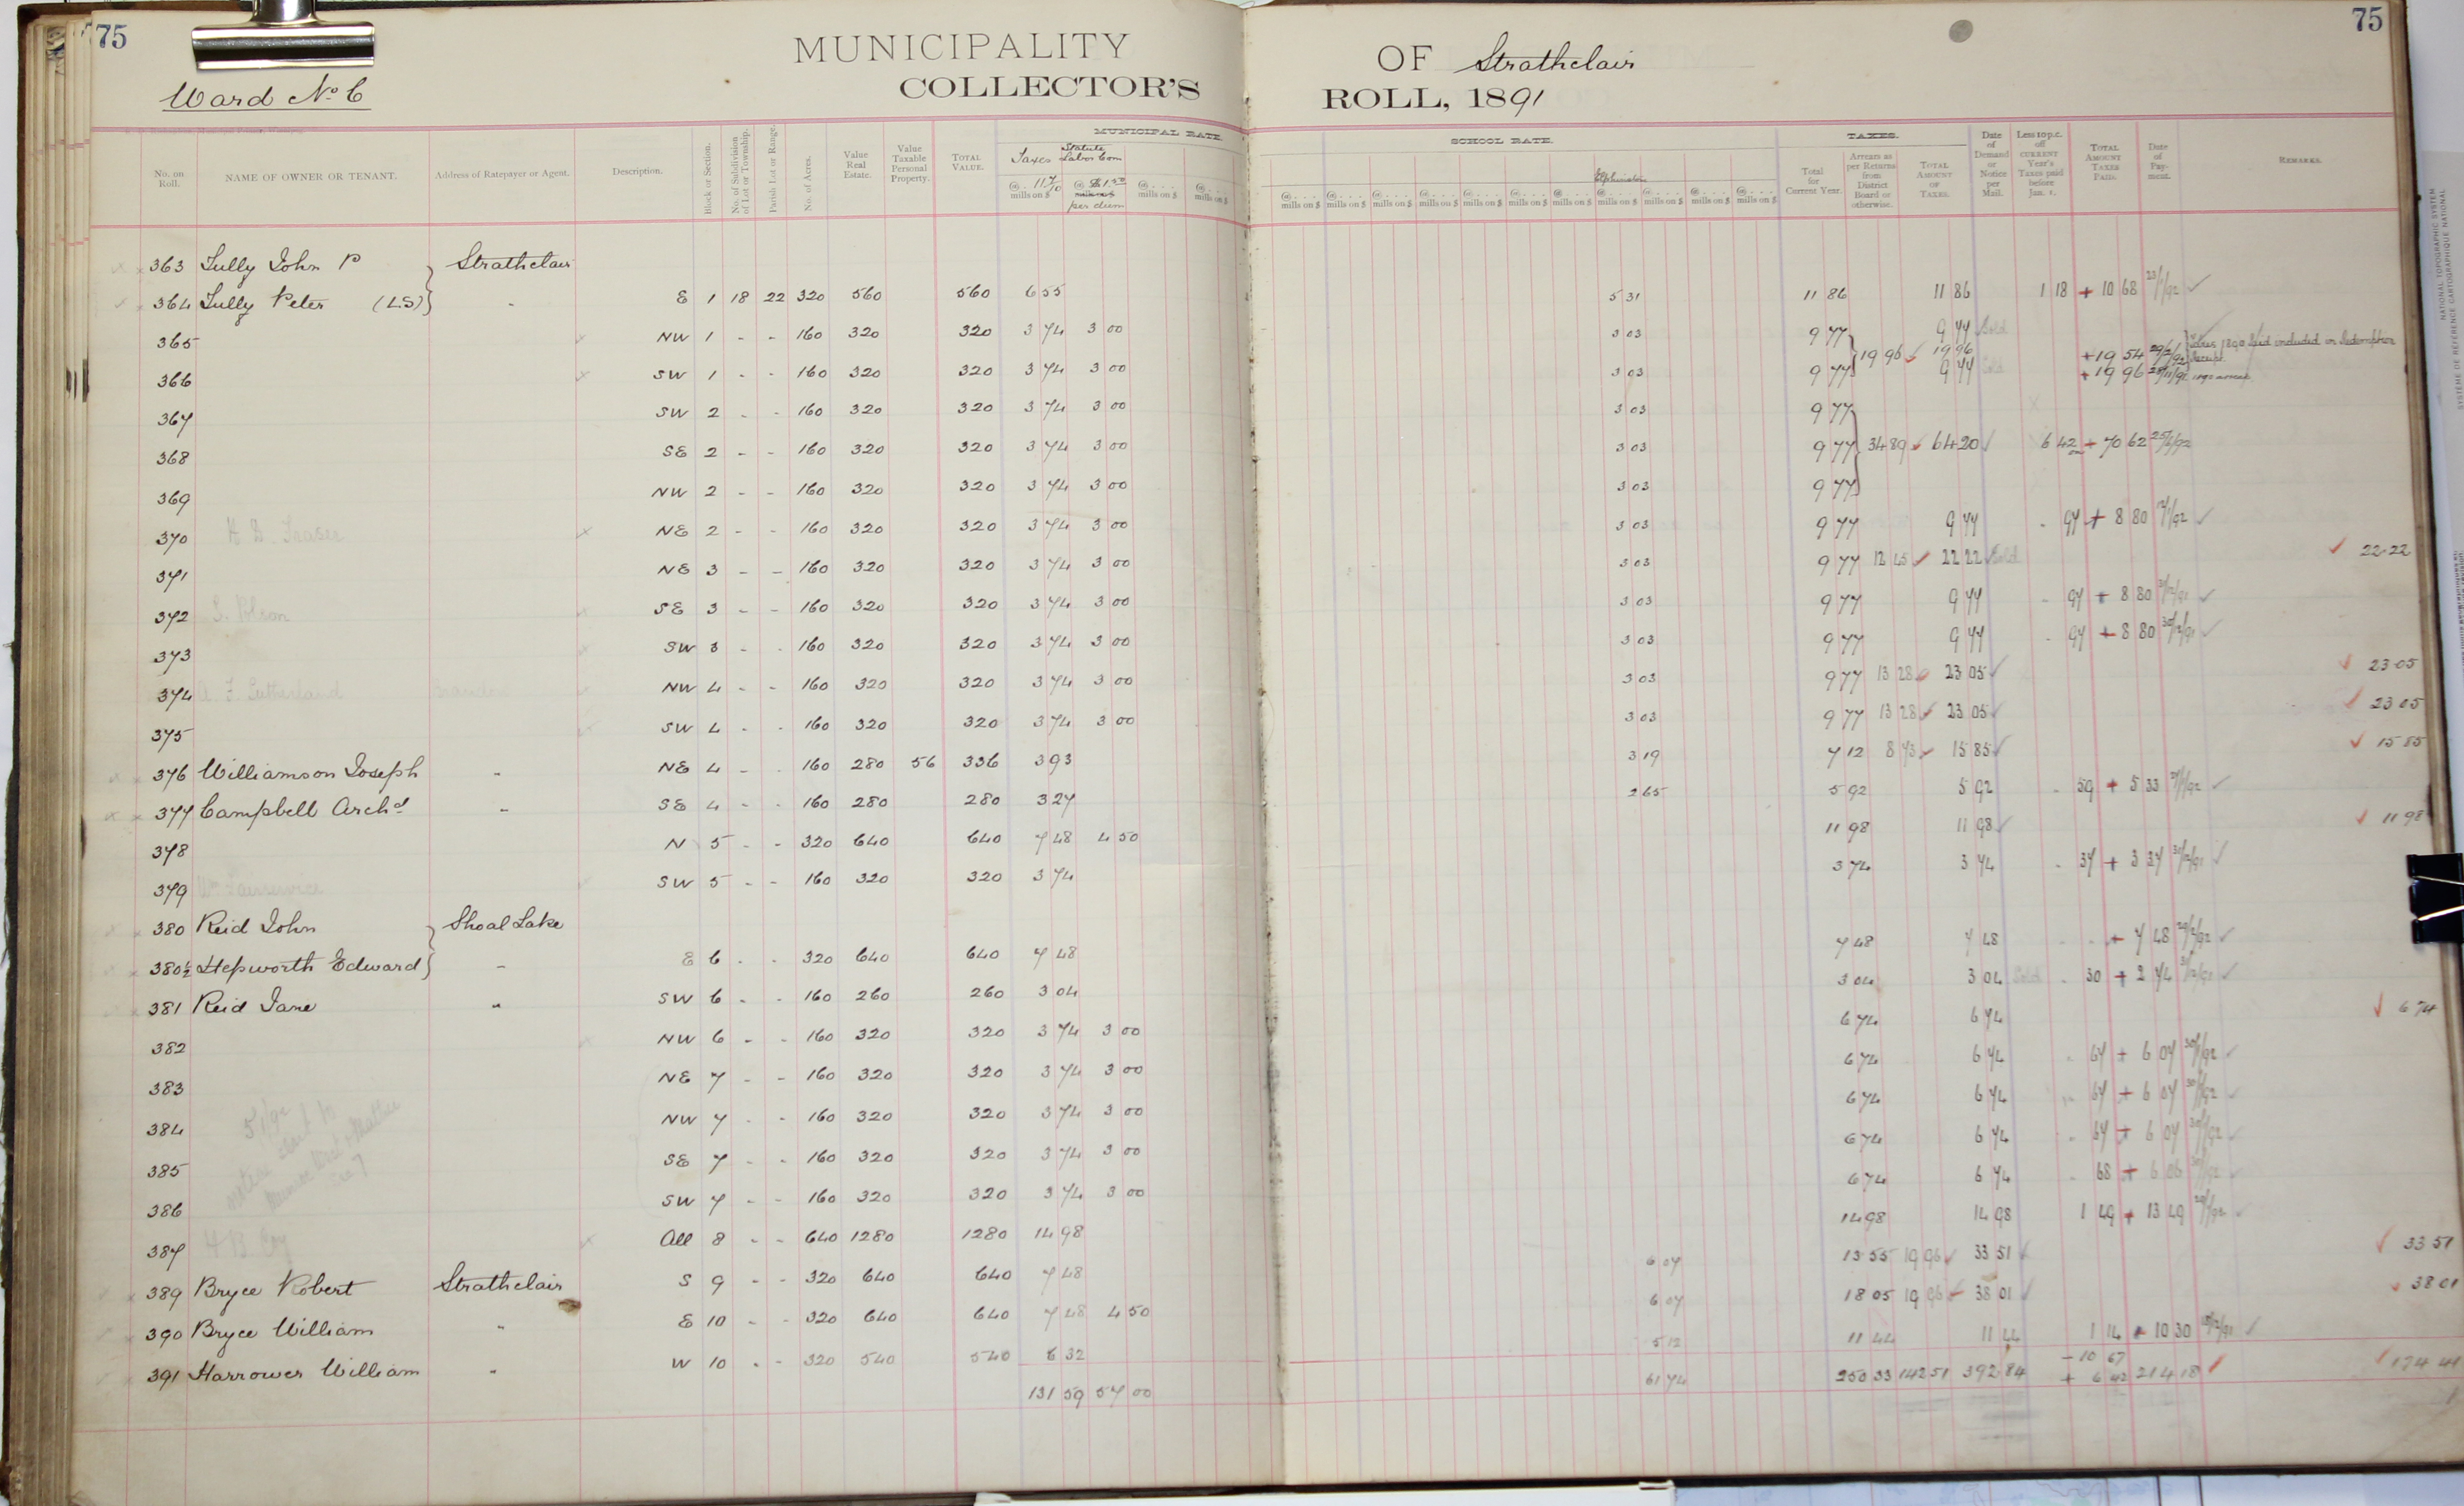 75 75
MUNICIPALITY OF Strathclair
Ward No 6 COLLECTOR'S ROLL, 1891
MUNICIPAL RATE. SCHOOL RATE. TAXES.
No. on Roll. NAME OF OWNER OR TENANT. Address of Ratepayer or Agent. Description. Block or Section. No. of Subdivision of Lot or Township. Parish Lot or Range. No. of Acres. Value Real Estate. Value Taxable Personal Property. TOTAL VALUE. Taxes @ 11 7/10 mills on $ Statute Labor Com @ $1.50 per diem @ . . . mills on $ Elphinstone Total for Current Year. Arrears as per Returns from District Board or otherwise. TOTAL AMOUNT OF TAXES. Date of Demand or Notice per Mail. Less 10 p.c. off CURRENT Year's Taxes paid before Jan. 1. TOTAL AMOUNT TAXES PAID. Date of Payment. REMARKS.
363 Tully John P Strathclair
364 Tully Peter (LS) " E 1 18 22 320 560 560 6 55 5 31 11 86 11 86 1 18 + 10 68 23/1/92
365 NW 1 - - 160 320 320 3 74 3 00 3 03 9 77 9 77 Sold
19 96 19 96 + 19 54 Taxes 1890 paid included in Redemption Receipt
366 SW 1 - - 160 320 320 3 74 3 00 3 03 9 77 9 77 + 19 96
367 SW 2 - - 160 320 320 3 74 3 00 3 03 9 77
368 SE 2 - - 160 320 320 3 74 3 00 3 03 9 77 34 89 64 20 6 42 + 70 62 25/6/92
369 NW 2 - - 160 320 320 3 74 3 00 3 03 9 77
370 NE 2 - - 160 320 320 3 74 3 00 3 03 9 77 9 77 - 97 + 8 80
371 NE 3 - - 160 320 320 3 74 3 00 3 03 9 77 12 45 22 22 Sold 22 22
372 SE 3 - - 160 320 320 3 74 3 00 3 03 9 77 9 77 - 97 + 8 80 31/12/91
373 SW 3 - - 160 320 320 3 74 3 00 3 03 9 77 9 77 - 97 + 8 80 30/12/91
374 A. F. Sutherland Brandon NW 4 - - 160 320 320 3 74 3 00 3 03 9 77 13 28 23 05 23 05
375 SW 4 - - 160 320 320 3 74 3 00 3 03 9 77 13 28 23 05 23 05
376 Williamson Joseph " NE 4 - - 160 280 56 336 3 93 3 19 7 12 8 73 15 85 15 85
377 Campbell Archd " SE 4 - - 160 280 280 3 27 2 65 5 92 5 92 - 59 + 5 33
378 N 5 - - 320 640 640 7 48 4 50 11 98 11 98 11 98
379 SW 5 - - 160 320 320 3 74 3 74 3 74 - 37 + 3 37 31/12/91
380 Reid John Shoal Lake
380½ Hepworth Edward " E 6 - - 320 640 640 7 48 7 48 7 48 - - + 7 48 29/2/92
381 Reid Jane " SW 6 - - 160 260 260 3 04 3 04 3 04 Sold - 30 + 2 74 31/12/91
382 NW 6 - - 160 320 320 3 74 3 00 6 74 6 74 6 74
383 NE 7 - - 160 320 320 3 74 3 00 6 74 6 74 - 67 + 6 07 30/1/92
384 NW 7 - - 160 320 320 3 74 3 00 6 74 6 74 - 67 + 6 07 30/1/92
385 SE 7 - - 160 320 320 3 74 3 00 6 74 6 74 - 67 + 6 07 30/1/92
386 SW 7 - - 160 320 320 3 74 3 00 6 74 6 74 - 68 + 6 06 30/1/92
387 All 8 - - 640 1280 1280 14 98 14 98 14 98 1 49 + 13 49
389 Bryce Robert Strathclair S 9 - - 320 640 640 7 48 6 07 13 55 19 96 33 51 33 51
390 Bryce William " E 10 - - 320 640 640 7 48 4 50 6 07 18 05 19 96 38 01 38 01
391 Harrower William " W 10 - - 320 540 540 6 32 5 12 11 44 11 44 1 14 + 10 30
131 59 57 00 61 74 250 33 142 51 392 84 - 10 67 + 6 42 214 18 174 41